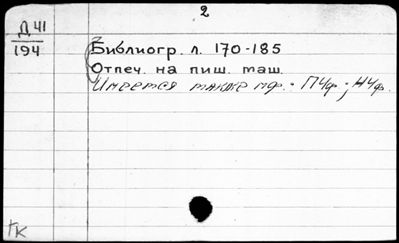 2
Д 41
194
Библиогр. л. 170-185
Отпеч. на пиш. маш.
Имеется также мф. : ПЧф ; НЧф.
ГК